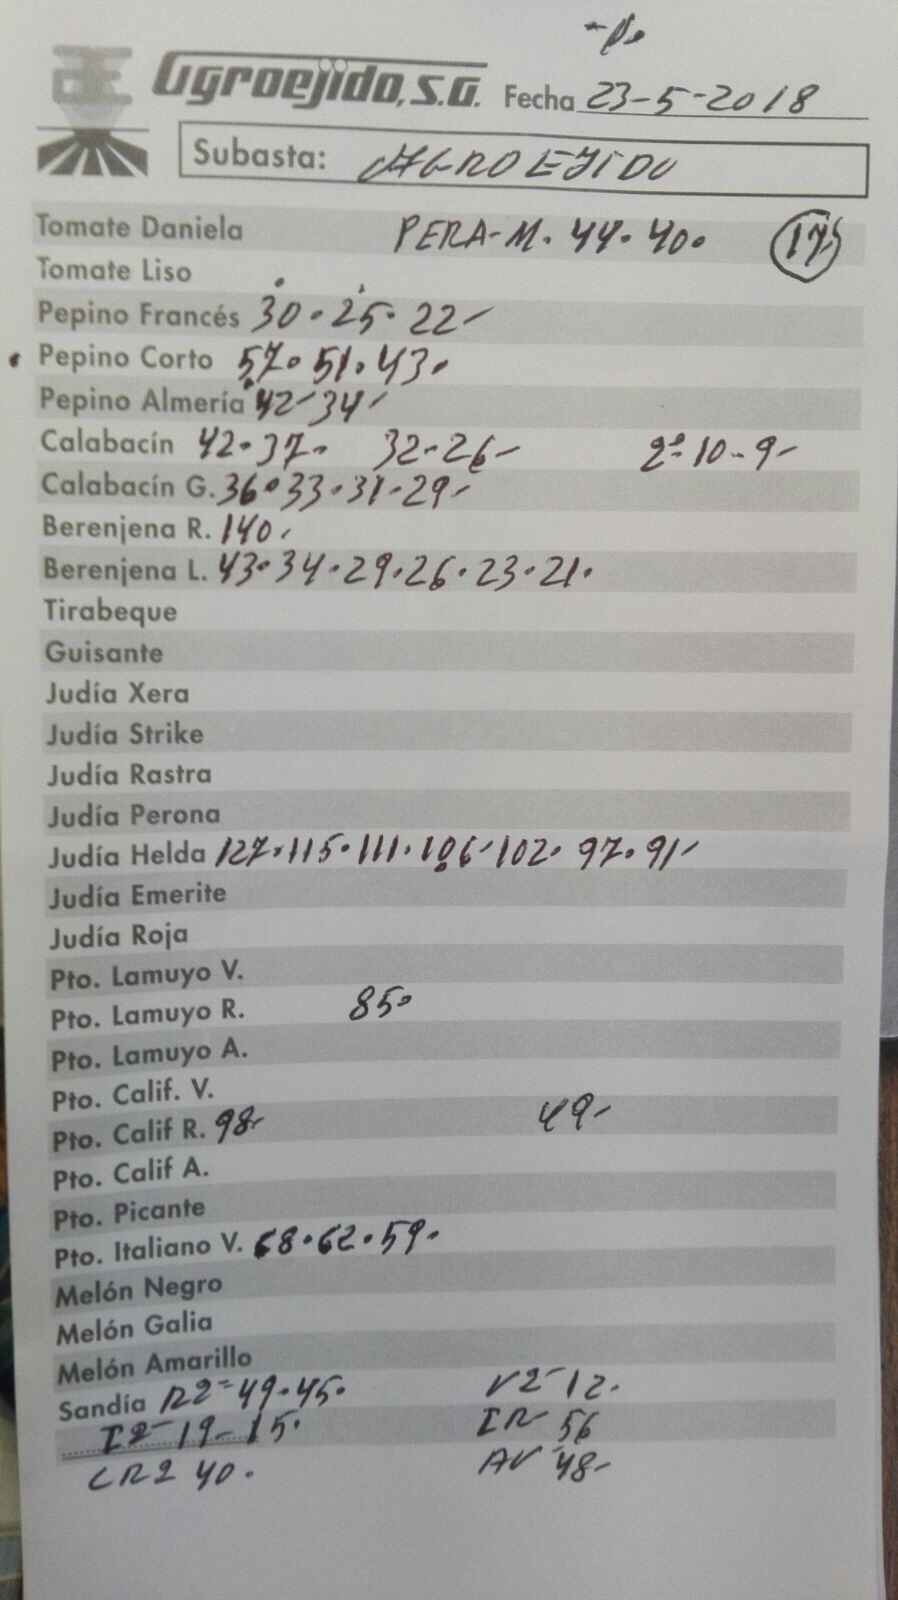 Agroejido, S.A. Fecha 23-5-2018
Subasta: AGROEJIDO
Tomate Daniela PERA-M. 44. 40.
Tomate Liso
Pepino Francés 30. 25. 22-
Pepino Corto 57. 51. 43.
Pepino Almería 42- 34-
Calabacín 42. 37. 32-26- 2ª 10-9-
Calabacín G. 36. 33. 31. 29-
Berenjena R. 140.
Berenjena L. 43. 34. 29. 26. 23. 21.
Tirabeque
Guisante
Judía Xera
Judía Strike
Judía Rastra
Judía Perona
Judía Helda 127. 115. 111. 106- 102. 97. 91-
Judía Emerite
Judía Roja
Pto. Lamuyo V.
Pto. Lamuyo R. 85.
Pto. Lamuyo A.
Pto. Calif. V.
Pto. Calif R. 98- 49-
Pto. Calif A.
Pto. Picante
Pto. Italiano V. 68. 62. 59.
Melón Negro
Melón Galia
Melón Amarillo
Sandía R2= 49. 45. V2- 12.
I2- 19-15. IR- 56
CR2 40. AV- 48-